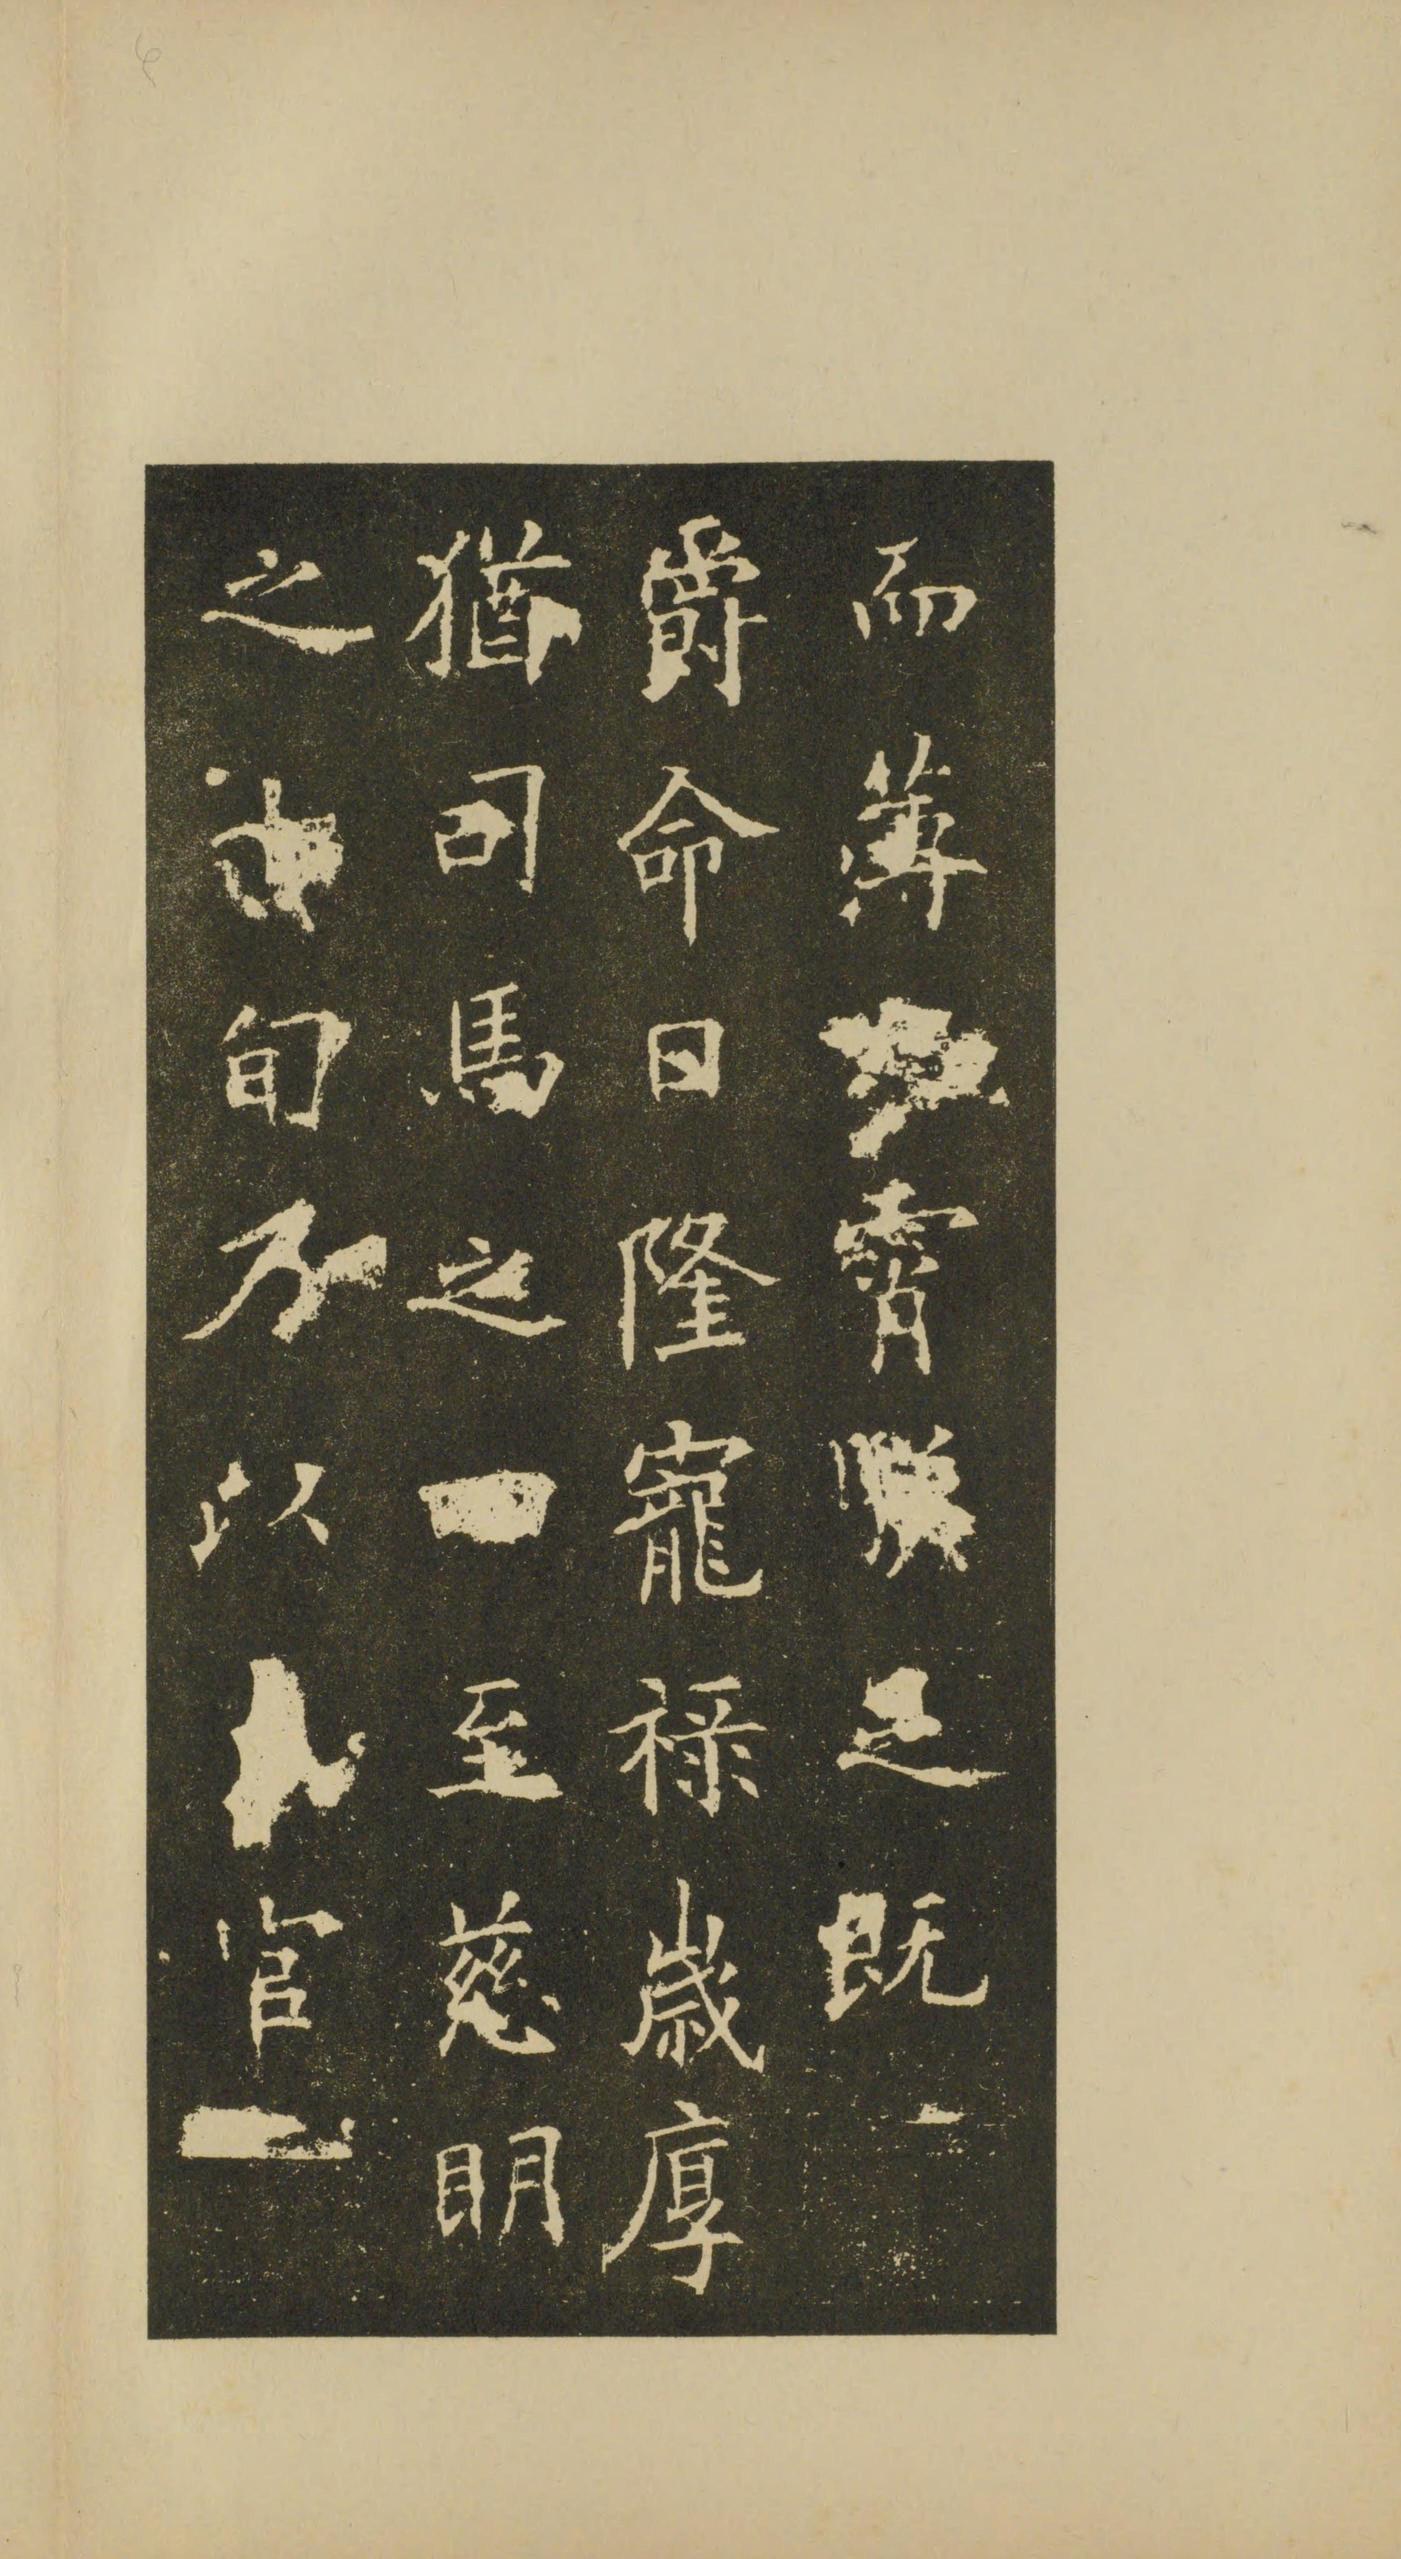 而薄霄之既
爵命日隆寵祿歲厚
猶司馬之一至慈明
之旬乃以官